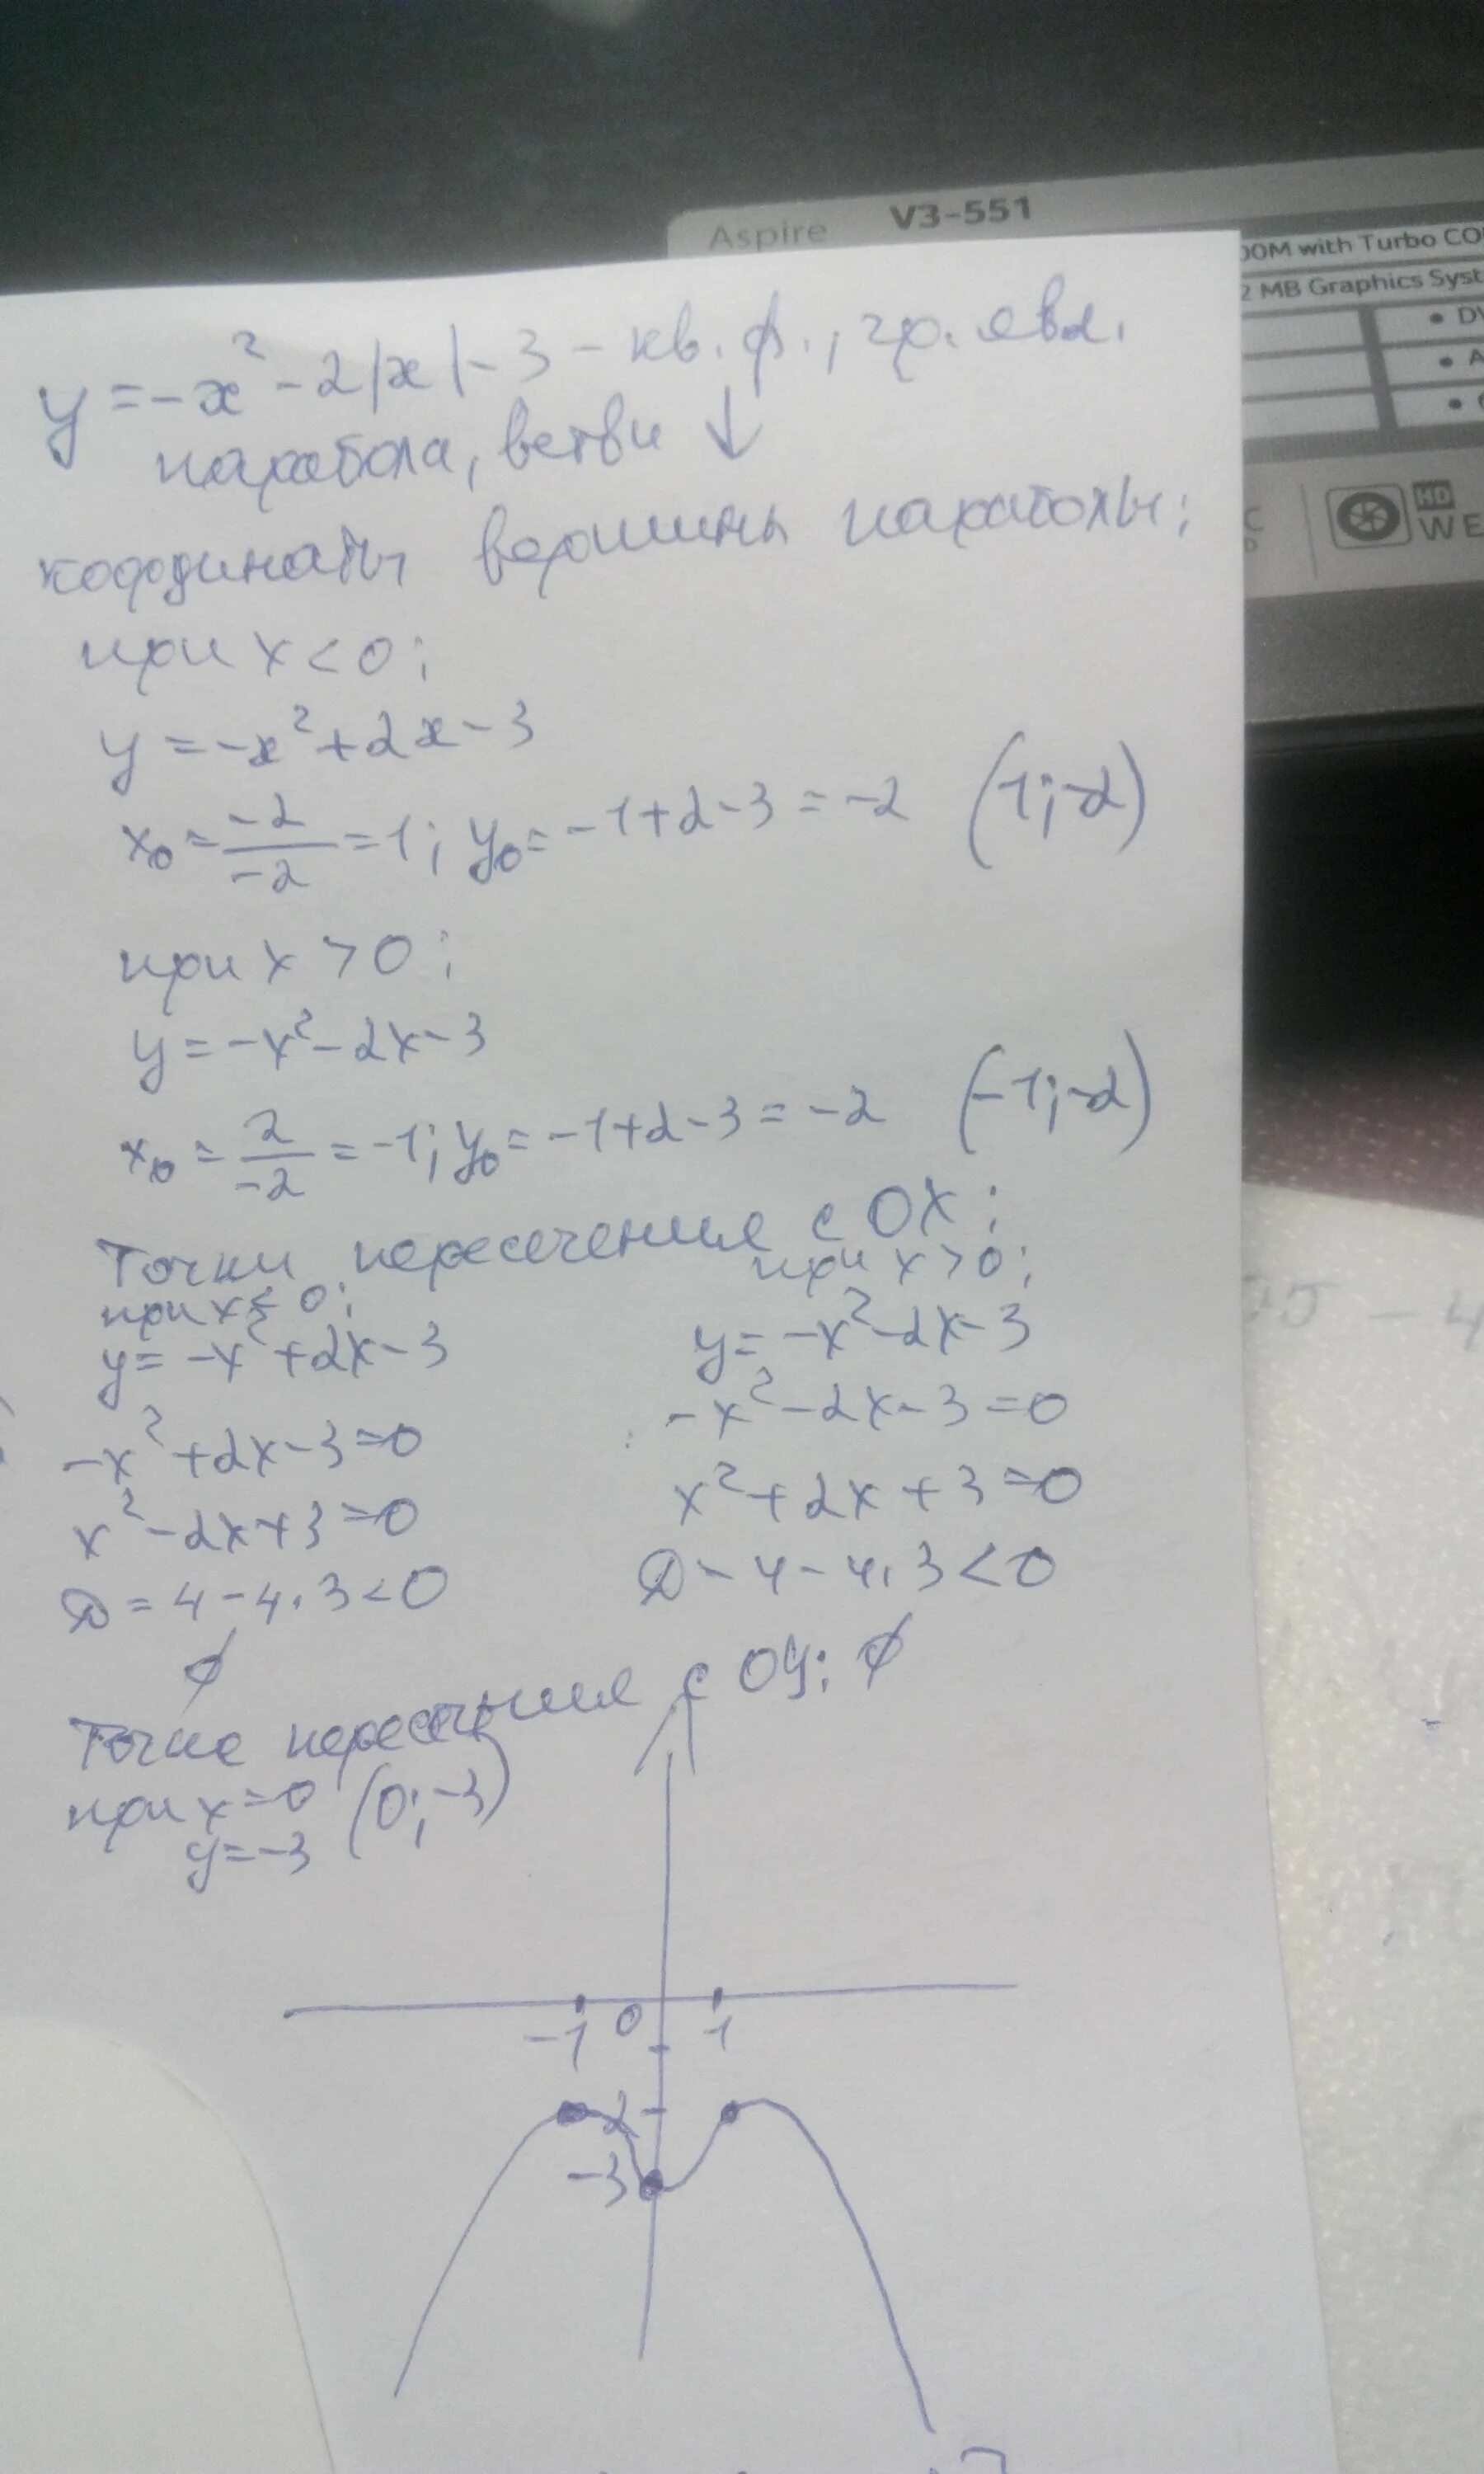 Aspire V3-551
OOM with Turbo CO
2 MB Graphics Syst
• DV
• A
HD
WE
y = -x² - 2|x| - 3 - кв. ф., гр. явл.
парабола, ветви ↓
координаты вершины параболы:
при x < 0:
y = -x² + 2x - 3
x₀ = -2/-2 = 1; y₀ = -1+2-3 = -2 (1;-2)
при x > 0:
y = -x² - 2x - 3
x₀ = 2/-2 = -1; y₀ = -1+2-3 = -2 (-1;-2)
Точки пересечения с OX:
при x < 0:
y = -x² + 2x - 3
-x² + 2x - 3 = 0
x² - 2x + 3 = 0
D = 4 - 4·3 < 0
∅
при x > 0:
y = -x² - 2x - 3
-x² - 2x - 3 = 0
x² + 2x + 3 = 0
D - 4 - 4·3 < 0
∅
Точка пересечения с OY:
при x = 0 (0;-3)
y = -3
-1 0 1
-2
-3
- 4